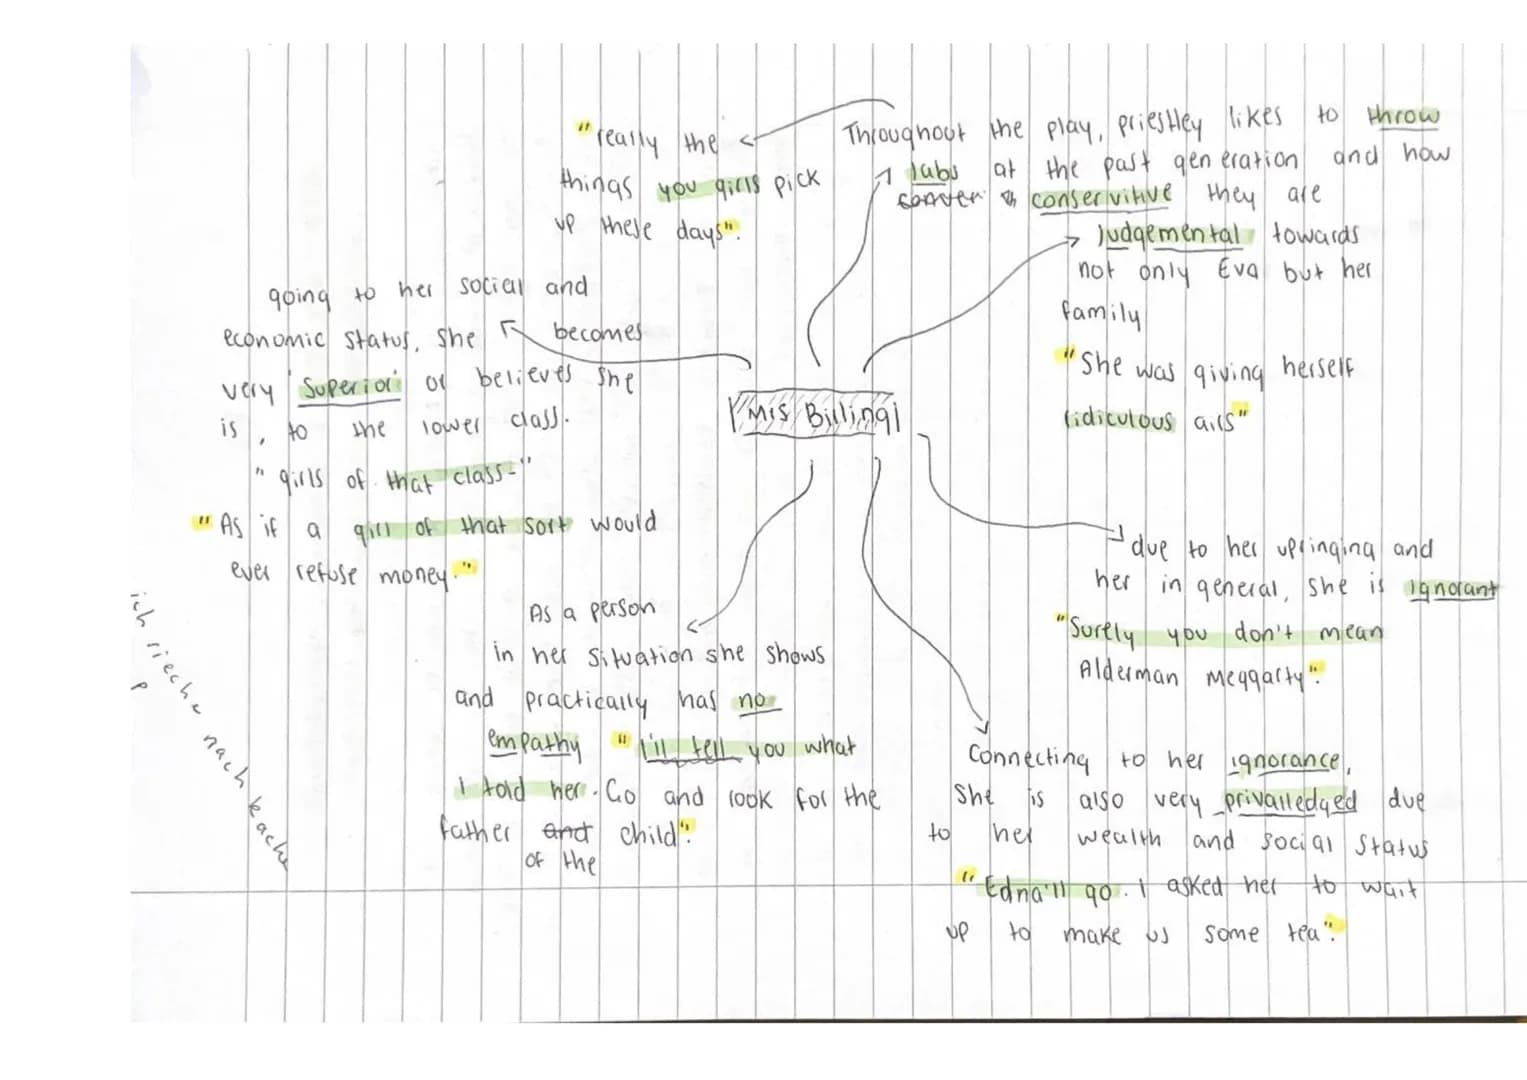 "really the
things you girls pick
up these days".
Throughout the play, priestley likes to throw
Jabs at the past generation and how
conservitive they are
judgemental towards
not only Eva but her
family
"She was giving herself
ridiculous airs"
going to her social and
economic status, she becomes
very 'superior' or believes she
is, to the lower class.
"girls of that class-"
"As if a girl of that sort would
ever refuse money."
Mrs Birling
due to her upringing and
her in general, she is ignorant
"Surely you don't mean
Alderman Meggarty".
As a person
in her situation she shows
and practically has no
empathy "I'll tell you what
I told her. Go and look for the
father and child".
of the
Connecting to her ignorance,
She is also very privalledged due
to her wealth and social status
"Edna'll go. I asked her to wait
up to make us some tea".
ich rieche nach kacke